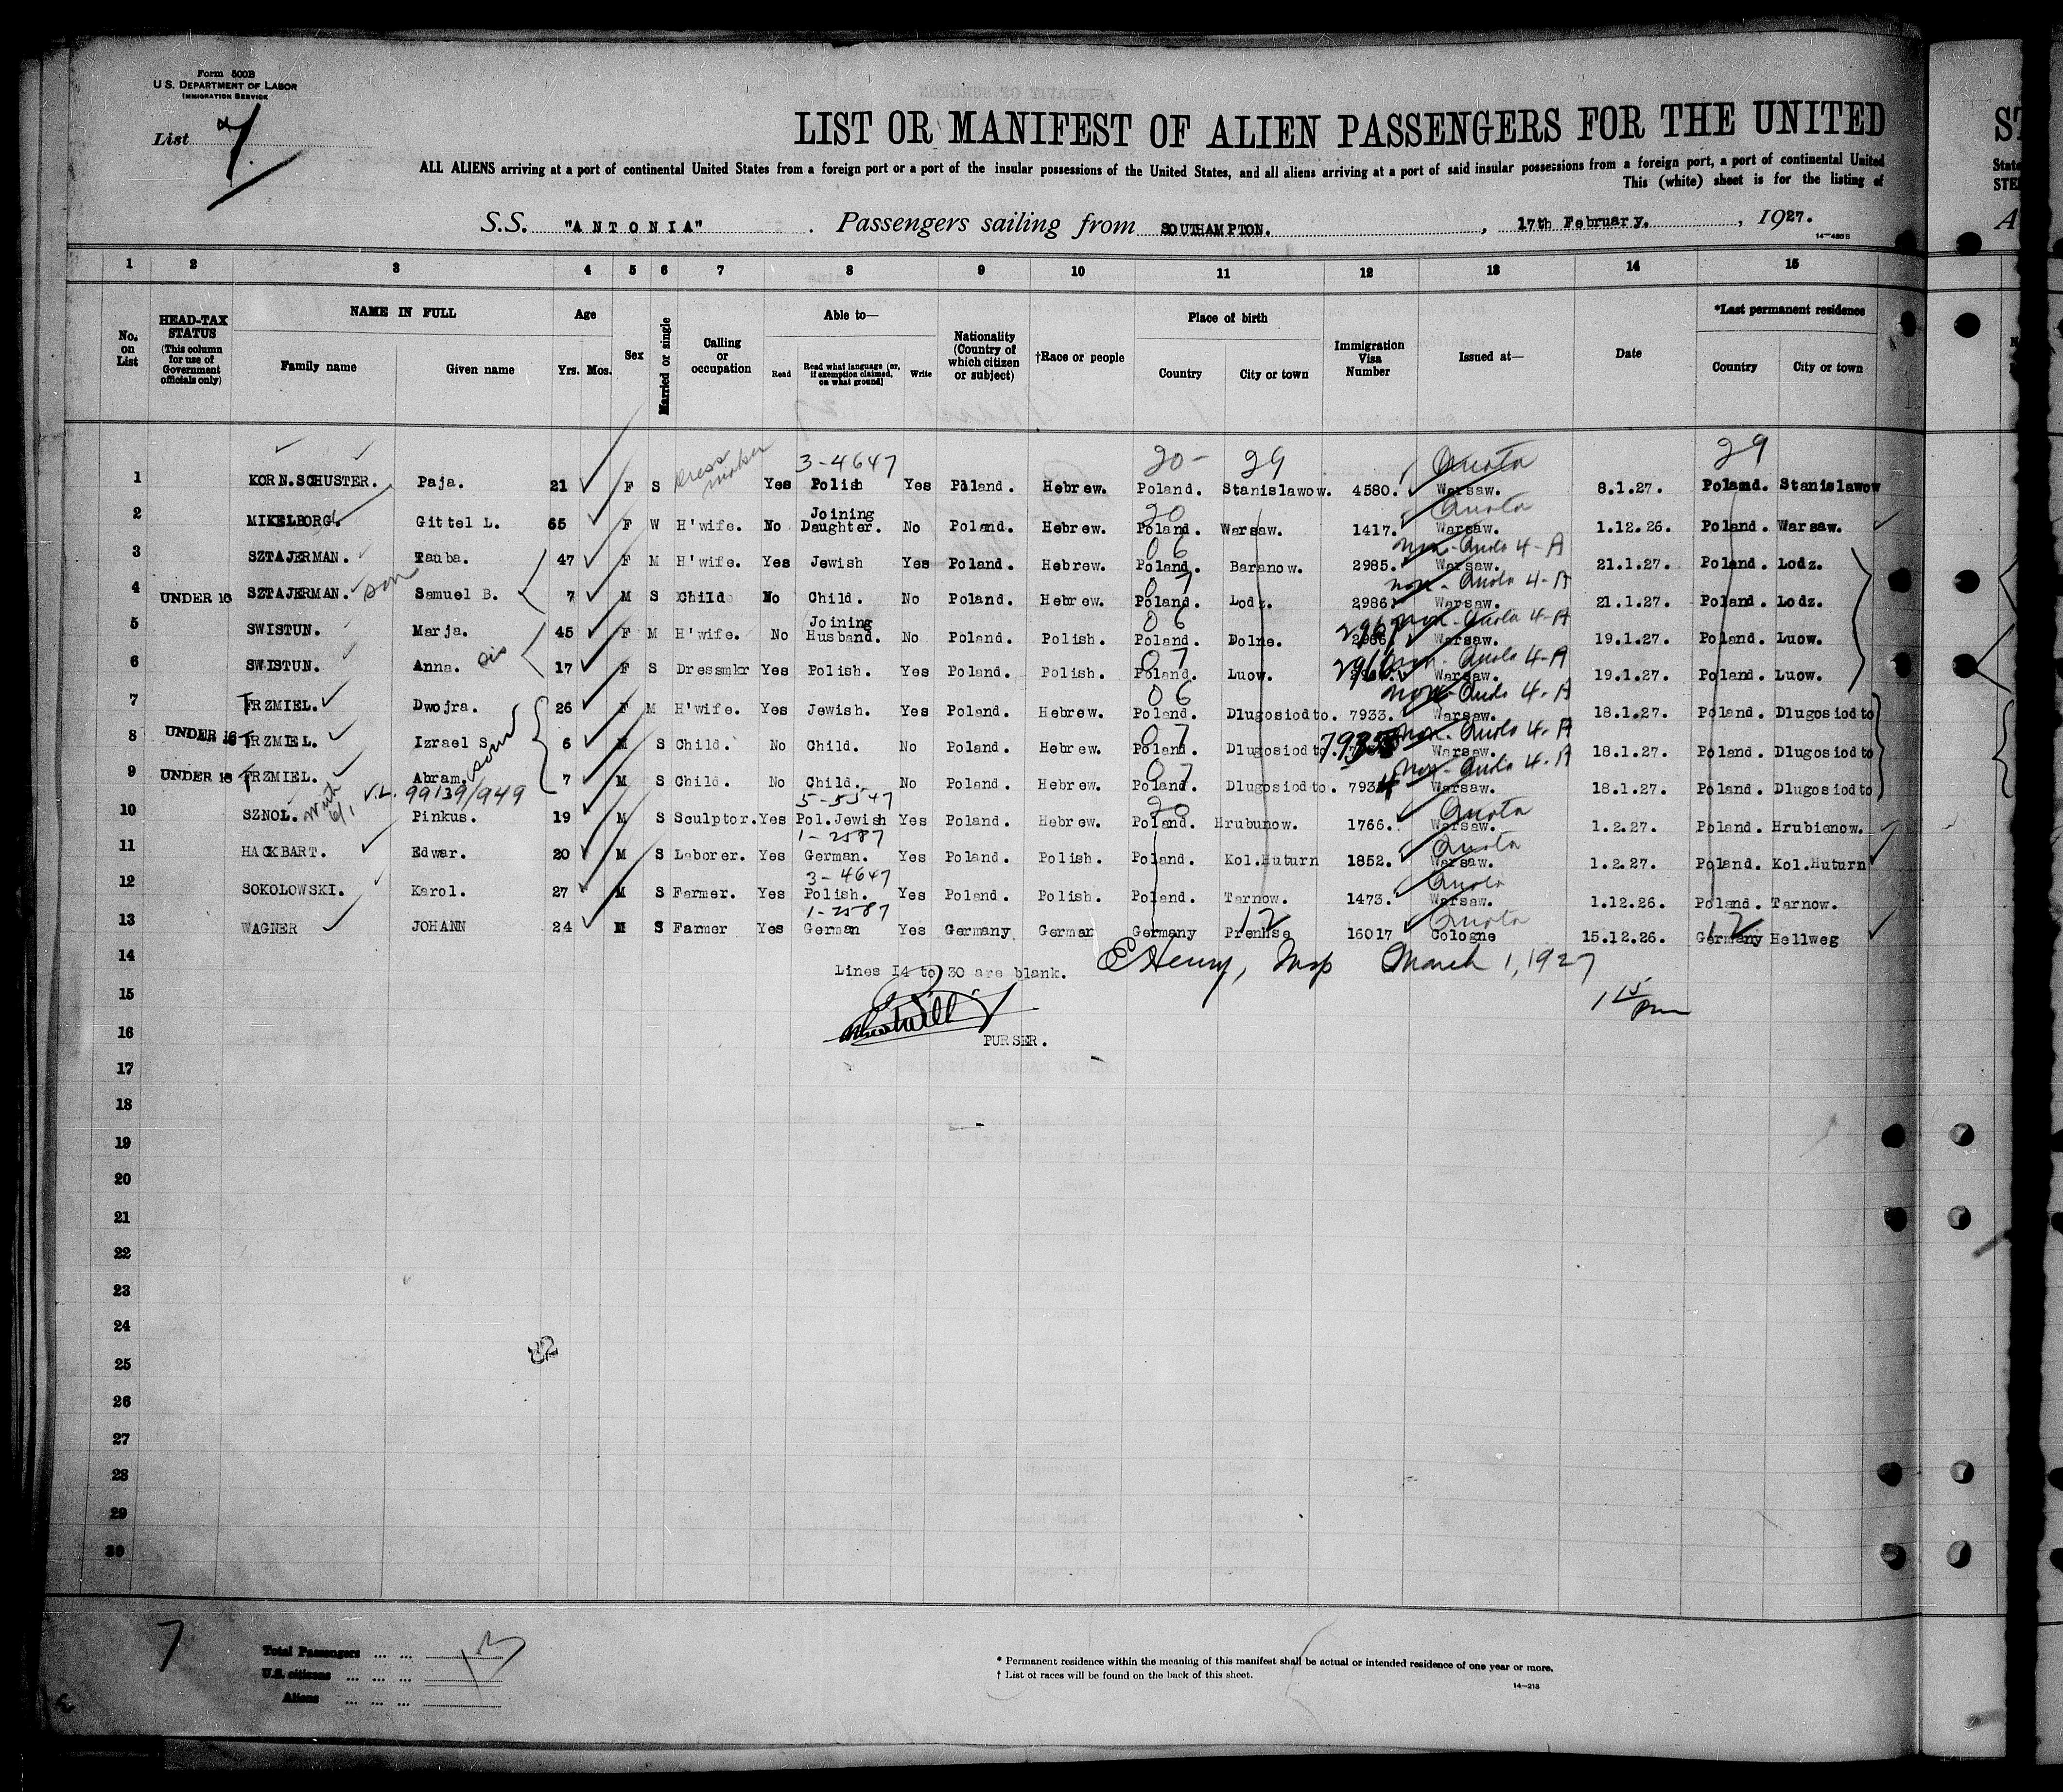 Form 500B
U.S. DEPARTMENT OF LABOR
IMMIGRATION SERVICE
List 7
LIST OR MANIFEST OF ALIEN PASSENGERS FOR THE UNITED
ALL ALIENS arriving at a port of continental United States from a foreign port or a port of the insular possessions of the United States, and all aliens arriving at a port of said insular possessions from a foreign port, a port of continental United
This (white) sheet is for the listing of
S.S. "ANTONIA" . Passengers sailing from SOUTHAMPTON. , 17th February. , 1927.
14-480B
1 2 3 4 5 6 7 8 9 10 11 12 13 14 15
No. on List
HEAD-TAX STATUS (This column for use of Government officials only)
NAME IN FULL Family name Given name
Age Yrs. Mos.
Sex
Married or single
Calling or occupation
Able to— Read Read what language [or, if exemption claimed, on what ground] Write
Nationality (Country of which citizen or subject)
†Race or people
Place of birth Country City or town
Immigration Visa Number
Issued at—
Date
*Last permanent residence Country City or town
Dress maker 3-4647 20- 29 Quota 29
1 KORN.SCHUSTER. Paja. 21 F S Yes Polish Yes Poland. Hebrew. Poland. Stanislawow. 4580. Warsaw. 8.1.27. Poland. Stanislawow
Joining 20 Quota
2 MIKELBORG. Gittel L. 65 F W H'wife. No Daughter. No Poland. Hebrew. Poland. Warsaw. 1417. Warsaw. 1.12.26. Poland. Warsaw.
06 Non-Quota 4-A
3 SZTAJERMAN. Tauba. 47 F M H'wife. Yes Jewish Yes Poland. Hebrew. Poland. Baranow. 2985. Warsaw. 21.1.27. Poland. Lodz.
07 Non-Quota 4-A
4 UNDER 16 SZTAJERMAN. son Samuel B. 7 M S Child No Child. No Poland. Hebrew. Poland. Lodz. 2986. Warsaw. 21.1.27. Poland. Lodz.
Joining 06 Non-Quota 4-A
5 SWISTUN. Marja. 45 F M H'wife. No Husband. No Poland. Polish. Poland. Dolne. Warsaw. 19.1.27. Poland. Luow.
07 Non-Quota 4-A
6 SWISTUN. Anna. 17 F S Dressmkr Yes Polish. Yes Poland. Polish. Poland. Luow. Warsaw. 19.1.27. Poland. Luow.
06 Non-Quota 4-A
7 TRZMIEL. Dwojra. 26 F M H'wife. Yes Jewish. Yes Poland. Hebrew. Poland. Dlugosiodto. 7933. Warsaw. 18.1.27. Poland. Dlugosiodto
07 Non-Quota 4-A
8 UNDER 16 TRZMIEL. Izrael S. sons 6 M S Child. No Child. No Poland. Hebrew. Poland. Dlugosiodto. 7935 Warsaw. 18.1.27. Poland. Dlugosiodto
07 Non-Quota 4-A
9 UNDER 16 TRZMIEL. Abram. 7 M S Child. No Child. No Poland. Hebrew. Poland. Dlugosiodto. 7934 Warsaw. 18.1.27. Poland. Dlugosiodto
V.L. 99139/949 5-5547 20 Quota
10 SZNOL. Pinkus. 19 M S Sculptor. Yes Pol.Jewish Yes Poland. Hebrew. Poland. Hrubunow. 1766. Warsaw. 1.2.27. Poland. Hrubianow.
1-2587 Quota
11 HACKBART. Edwar. 20 M S Laborer. Yes German. Yes Poland. Polish. Poland. Kol.Huturn 1852. Warsaw. 1.2.27. Poland. Kol.Huturn
3-4647 Quota
12 SOKOLOWSKI. Karol. 27 M S Farmer. Yes Polish. Yes Poland. Polish. Poland. Tarnow. 1473. Warsaw. 1.12.26. Poland. Tarnow.
1-2587 12 Quota 12
13 WAGNER JOHANN 24 M S Farmer Yes German Yes Germany German Germany Prenhse 16017 Cologne 15.12.26. Germany Hellweg
14 Lines 14 to 30 are blank. E Henry, Insp March 1, 1927
15 1 15 pm
16 PURSER.
17
18
19
20
21
22
23
24
25
26
27
28
29
30
7
Total Passengers ... ... 13
U.S. citizens ... ... ...
Aliens ... ... ...
* Permanent residence within the meaning of this manifest shall be actual or intended residence of one year or more.
† List of races will be found on the back of this sheet.
14-213